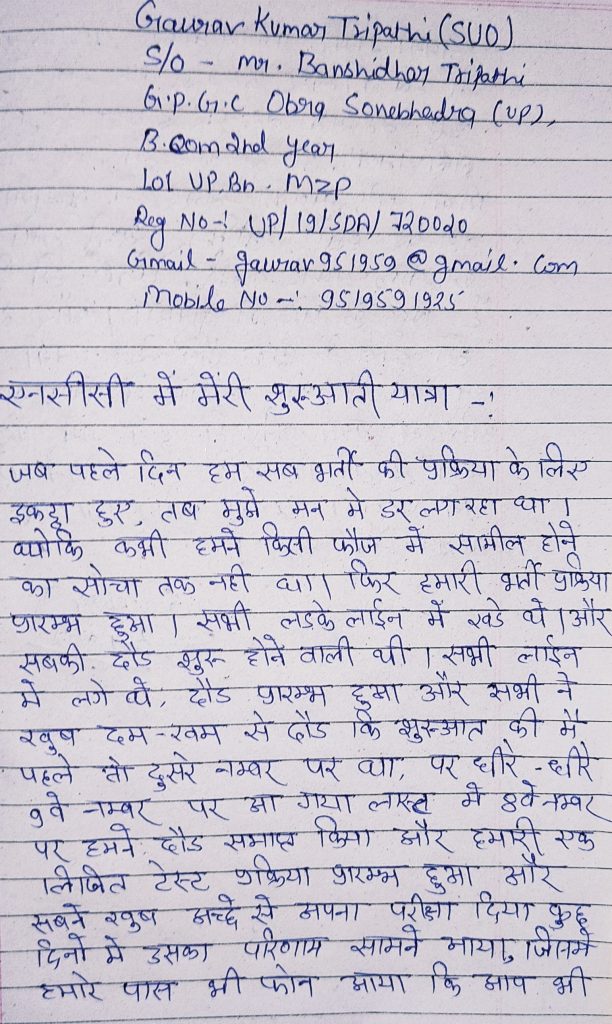 Gaurav Kumar Tripathi (SUO)
S/o - mr. Banshidhar Tripathi
G.P.G.C Obra Sonebhadra (UP),
B.com 2nd year
101 UP. Bn. MZP
Reg No-: UP/19/SDA/720020
Gmail - gaurav951959@gmail.com
Mobile No -: 9519591925
एनसीसी में मेरी शुरुआती यात्रा -:
जब पहले दिन हम सब भर्ती की प्रक्रिया के लिए
इकट्ठा हुए, तब मुझे मन मे डर लग रहा था।
क्योकि कभी हमने किसी फौज में सामील होने
का सोचा तक नही था। फिर हमारी भर्ती प्रक्रिया
प्रारम्भ हुआ। सभी लडके लाईन में खडे थे। और
सबकी दौड शुरू होने वाली थी। सभी लाईन
में लगे थे, दौड प्रारम्भ हुआ और सभी ने
खुब दम-खम से दौड कि शुरुआत की मैं
पहले तो दुसरे नम्बर पर था, पर धीरे-धीरे
9वे नम्बर पर आ गया लास्ट में 8वे नम्बर
पर हमने दौड समाप्त किया और हमारी एक
लिखित टेस्ट प्रक्रिया प्रारम्भ हुआ और
सबने खुब अच्छे से अपना परीक्षा दिया कुछ
दिनो मे उसका परिणाम सामने आया, जिसमे
हमारे पास भी फोन आया कि आप भी